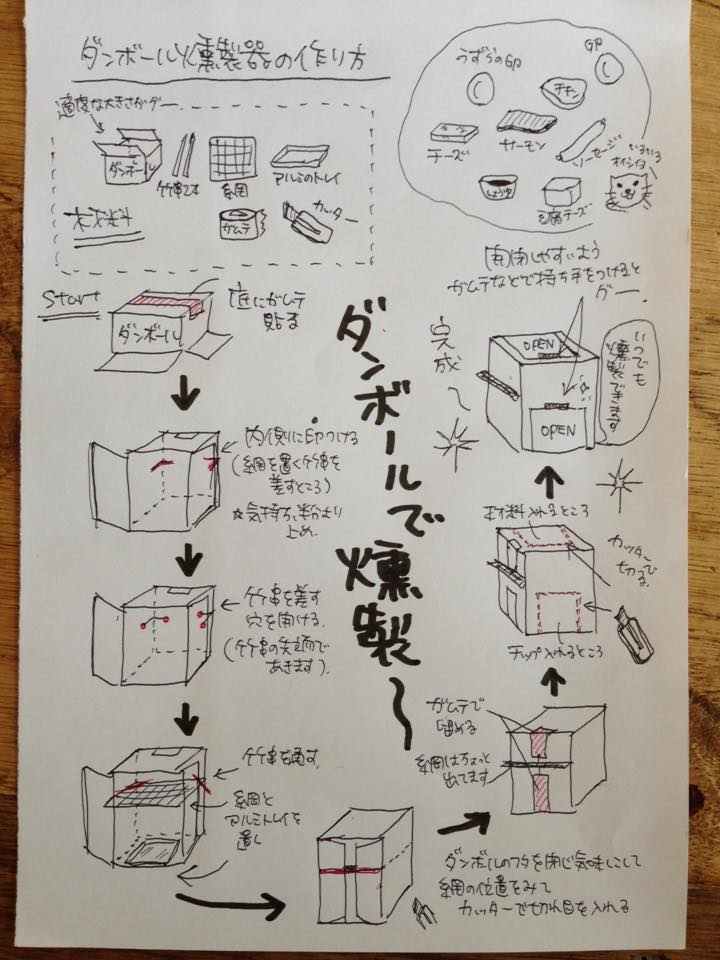 ダンボール燻製器の作り方
適度な大きさがグー
ダンボール
竹串2本
網
アルミのトレイ
材料
ガムテ
カッター
うずらの卵
卵
チキン
チーズ
サーモン
ソーセージ
しょうゆ
豆腐チーズ
オイシイヨ
Start
ダンボール
底にガムテ
貼る
内側に印つける
(網を置く竹串を
差すところ)
☆気持ち、半分より
上め。
竹串を差す
穴を開ける。
(竹串の先端で
あきます)。
竹串を通す。
網と
アルミトレイを
置く
ダンボールのフタを閉じ気味にして
網の位置をみて
カッターで切れ目を入れる
ガムテで
留める
網はちょっと
出てます
材料入れるところ
カッターで
切る。
チップ入れるところ
開閉しやすいよう
ガムテなどで持ち手をつけると
グー。
完成〜
OPEN
OPEN
いつでも
燻製できます
ダンボールで燻製〜